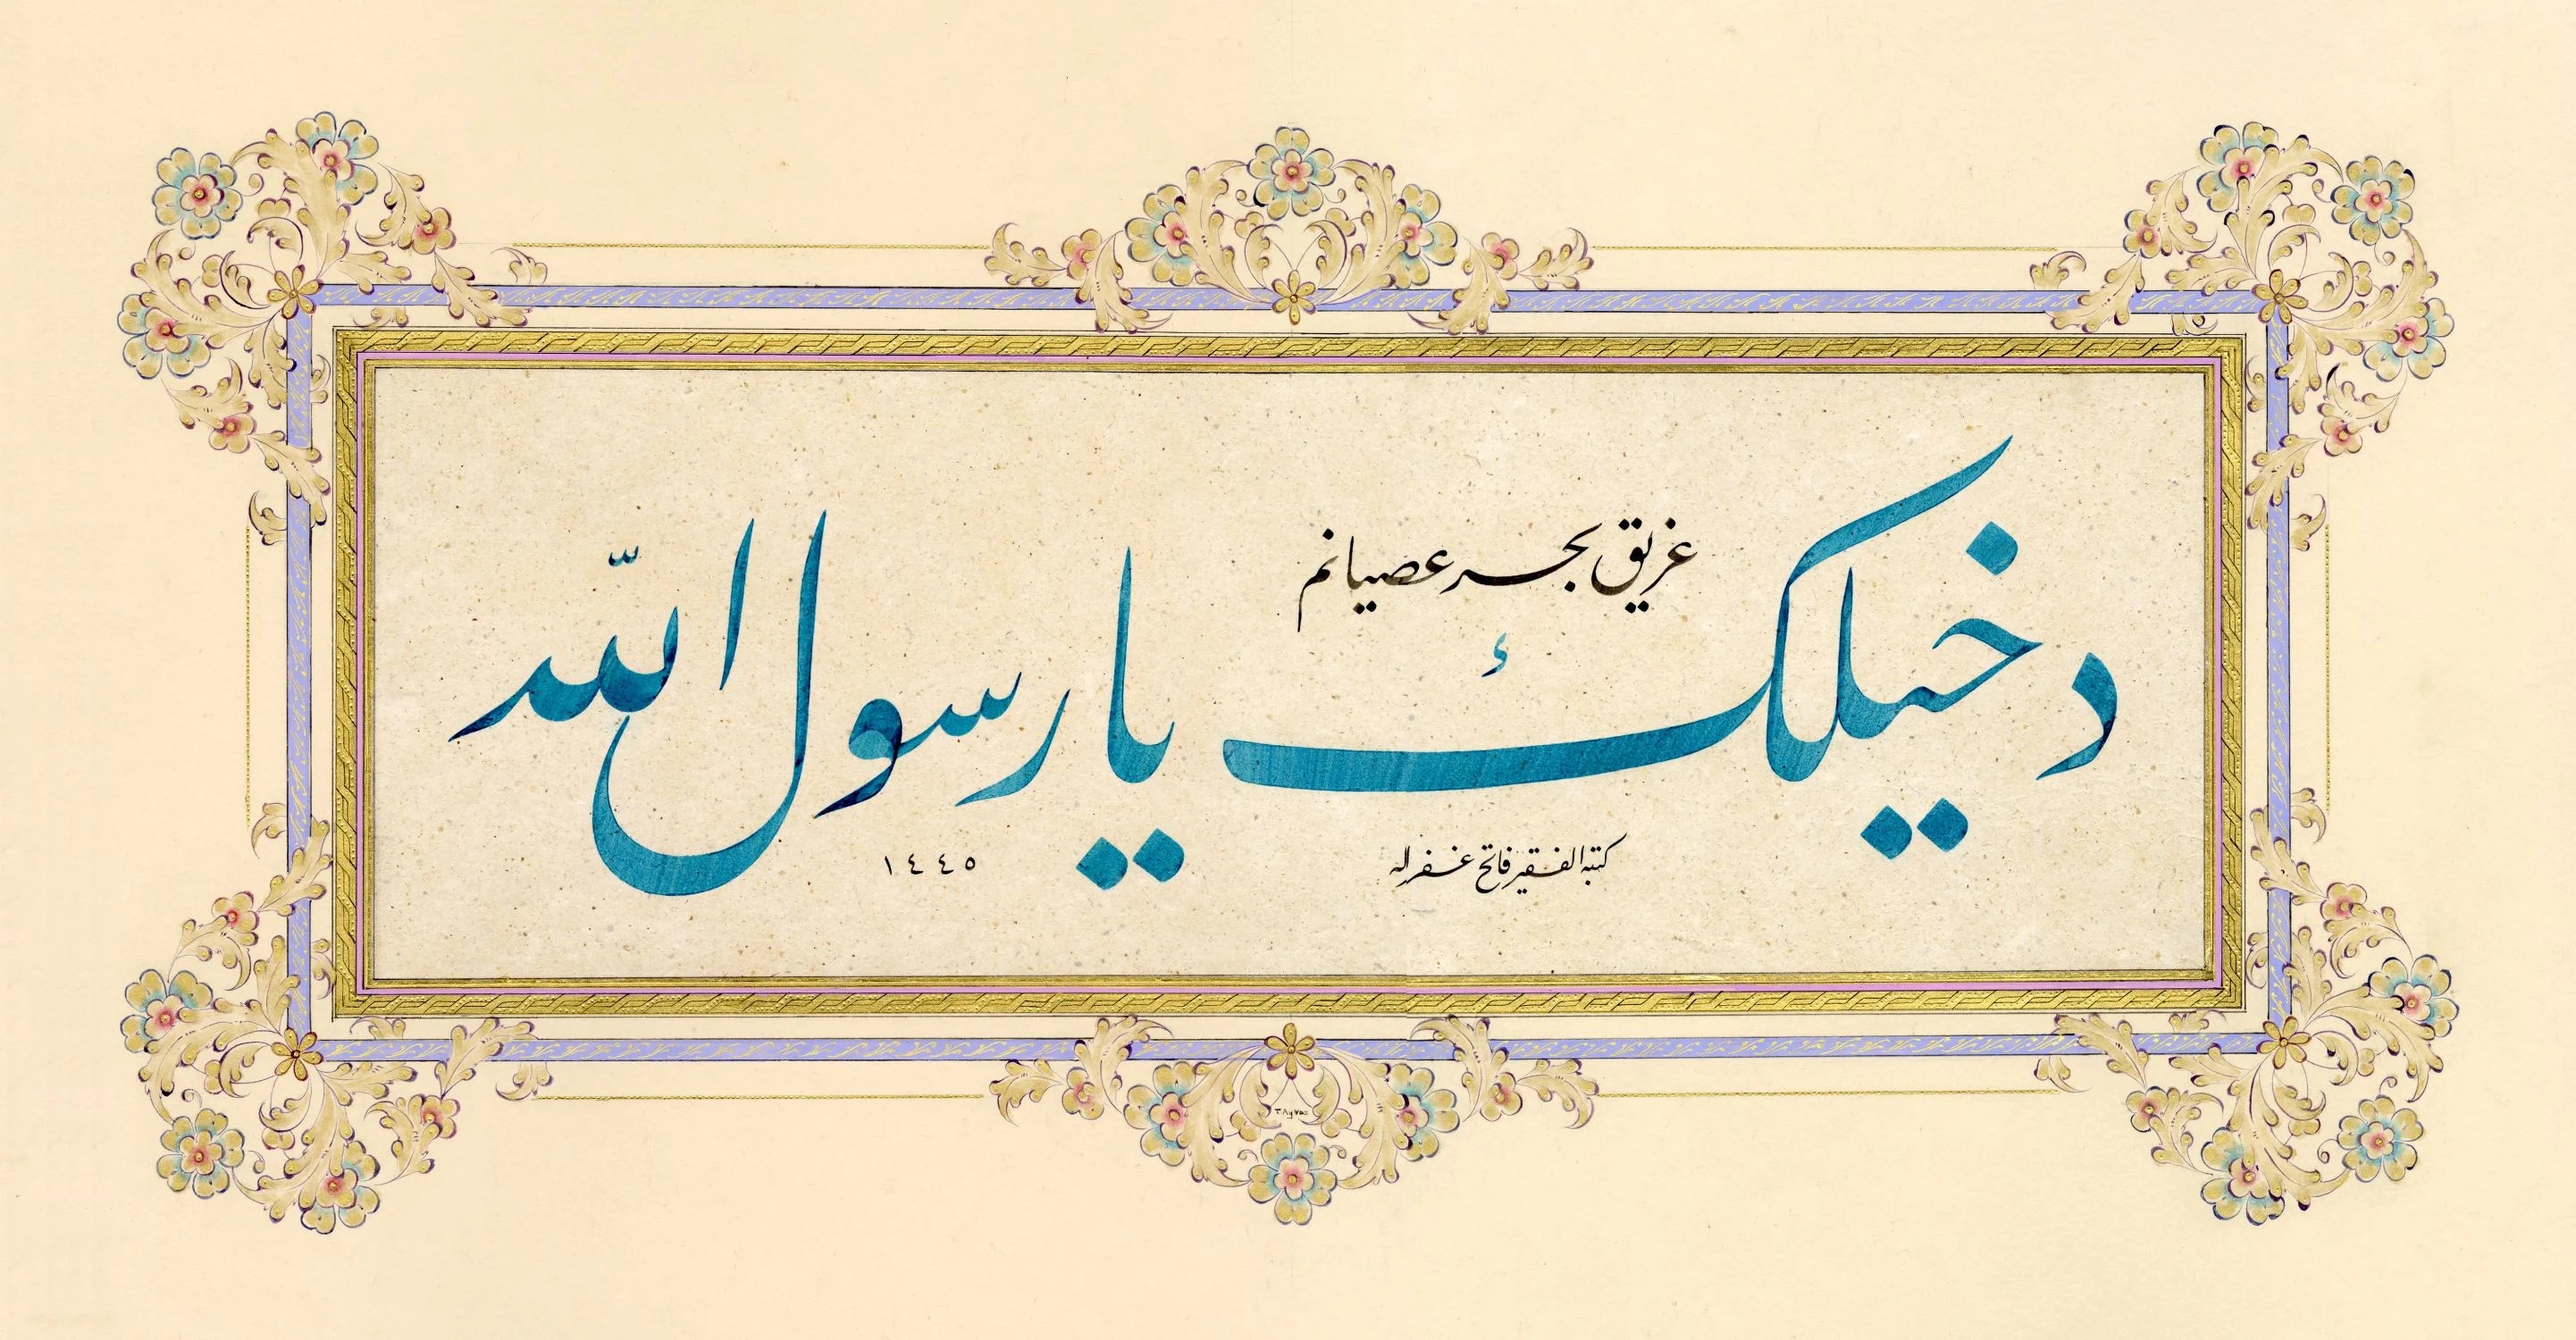 غريق بحر عصيانم
دخيلك يا رسول الله
كتبه الفقير فاتح غفر له
١٤٤٥
T.Ayvaz